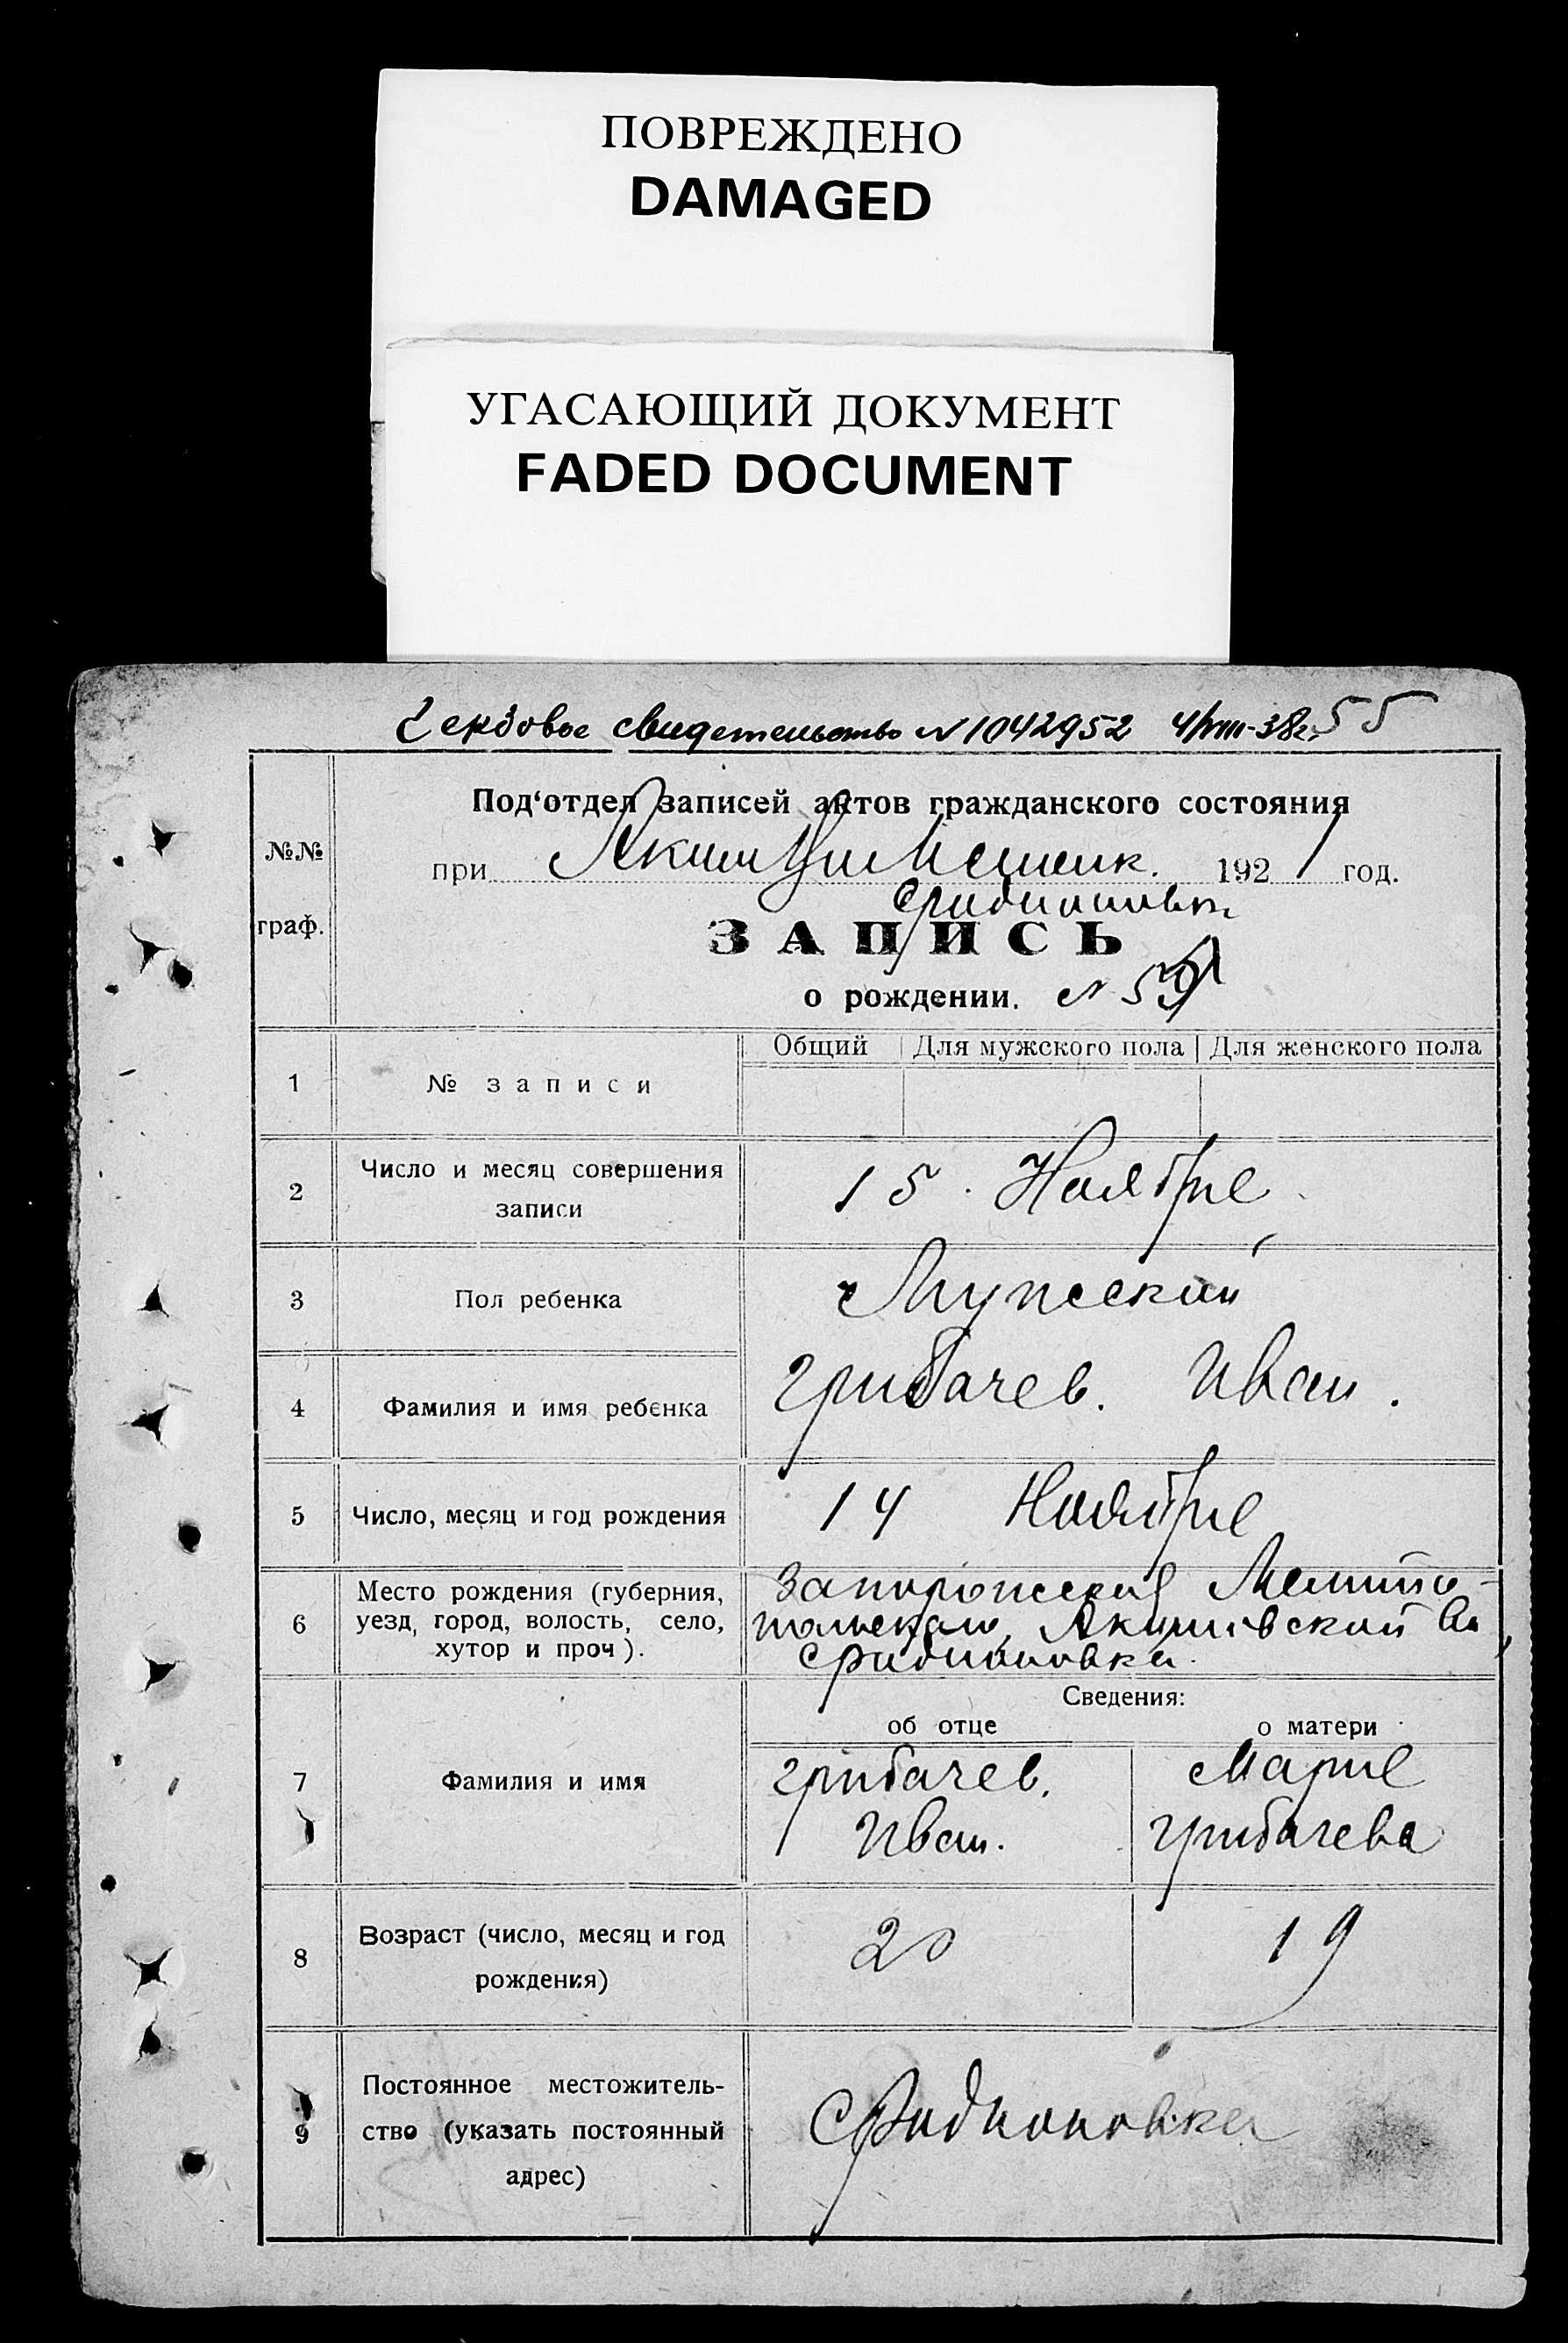 ПОВРЕЖДЕНО
DAMAGED
УГАСАЮЩИЙ ДОКУМЕНТ
FADED DOCUMENT
свидетельство N 1042952 4/VIII-38г. 55
№№
граф.
Под‘отдел записей актов гражданского состояния
при 1921 год.
ЗАПИСЬ
о рождении. N
Общий Для мужского пола Для женского пола
1 № записи
2 Число и месяц совершения
записи
15. Ноября
3 Пол ребенка Мужской
4 Фамилия и имя ребенка Грибачев. Иван.
5 Число, месяц и год рождения 14 Ноября
6 Место рождения (губерния,
уезд, город, волость, село,
хутор и проч).
Запорожской Мелито-
польскаго, Акимовской Вл,
с Родионовка.
Сведения:
об отце о матери
7 Фамилия и имя
Грибачев. Мария
Иван. Грибачева
8 Возраст (число, месяц и год
рождения)
20 19
9 Постоянное местожитель-
ство (указать постоянный
адрес)
с Родионовка